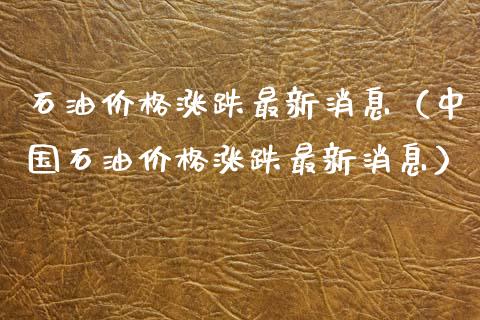 石油价格涨跌最新消息（中
国石油价格涨跌最新消息）